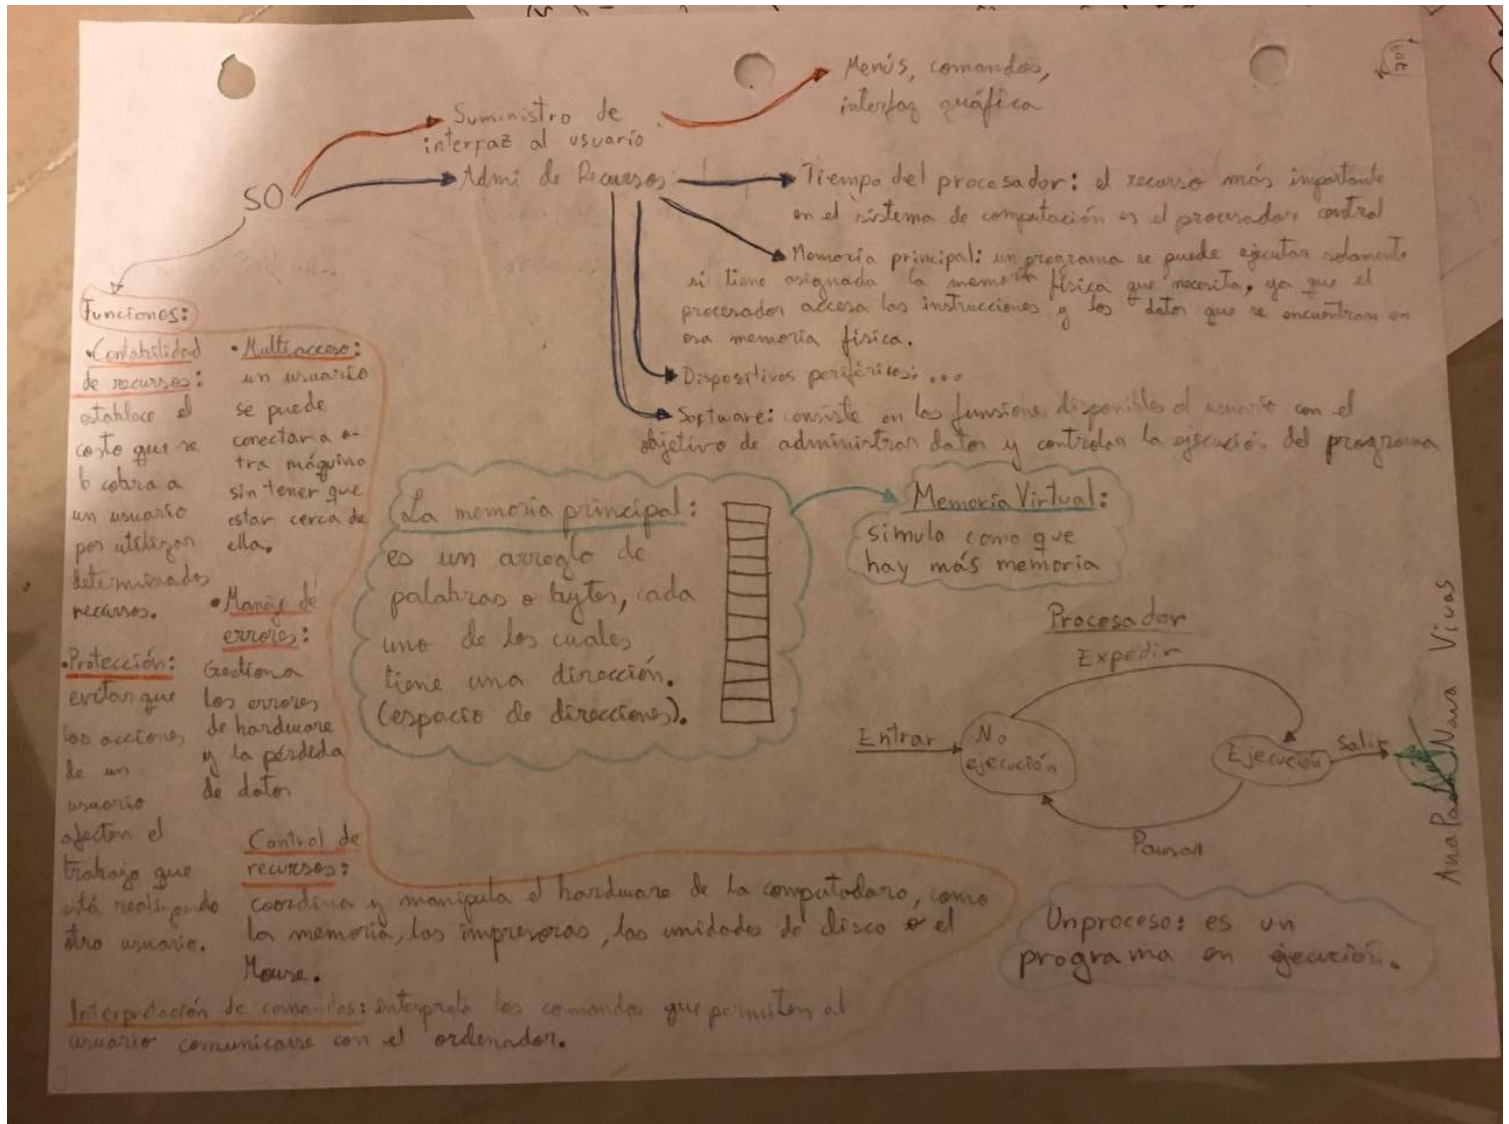 SO
Suministro de
interfaz al usuario
Menús, comandos,
interfaz gráfica
Admi de Recursos:
Tiempo del procesador: el recurso más importante
en el sistema de computación es el procesador control
Memoria principal: un programa se puede ejecutar solamente
si tiene asignada la memoria física que necesita, ya que el
procesador accesa las instrucciones y los datos que se encuentran en
esa memoria física.
Dispositivos periféricos: ...
Software: consiste en las funsiones disponibles al usuario con el
objetivo de administrar datos y controlar la ejecución del programa
Funciones:
• Contabilidad
de recursos:
establece el
costo que se
le cobra a
un usuario
por utilizar
determinados
recursos.
• Multiacceso:
un usuario
se puede
conectar a o-
tra máquina
sin tener que
estar cerca de
ella.
• Manejo de
errores:
Gestiona
los errores
de hardware
y la pérdida
de datos
• Protección:
evitar que
las acciones
de un
usuario
afecten el
trabajo que
está realizando
otro usuario.
Control de
recursos:
coordina y manipula el hardware de la computadora, como
la memoria, las impresoras, las unidades de disco o el
Mouse.
Interpretación de comandos: interpreta los comandos que permiten al
usuario comunicarse con el ordenador.
La memoria principal:
es un arreglo de
palabras o bytes, cada
uno de los cuales
tiene una dirección.
(espacio de direcciones).
Memoria Virtual:
simula como que
hay más memoria
Procesador
Expedir
Entrar
No
ejecución
Ejecución
Salir
Pausar
Un proceso: es un
programa en ejecución.
Ana Paula Nava Vivas